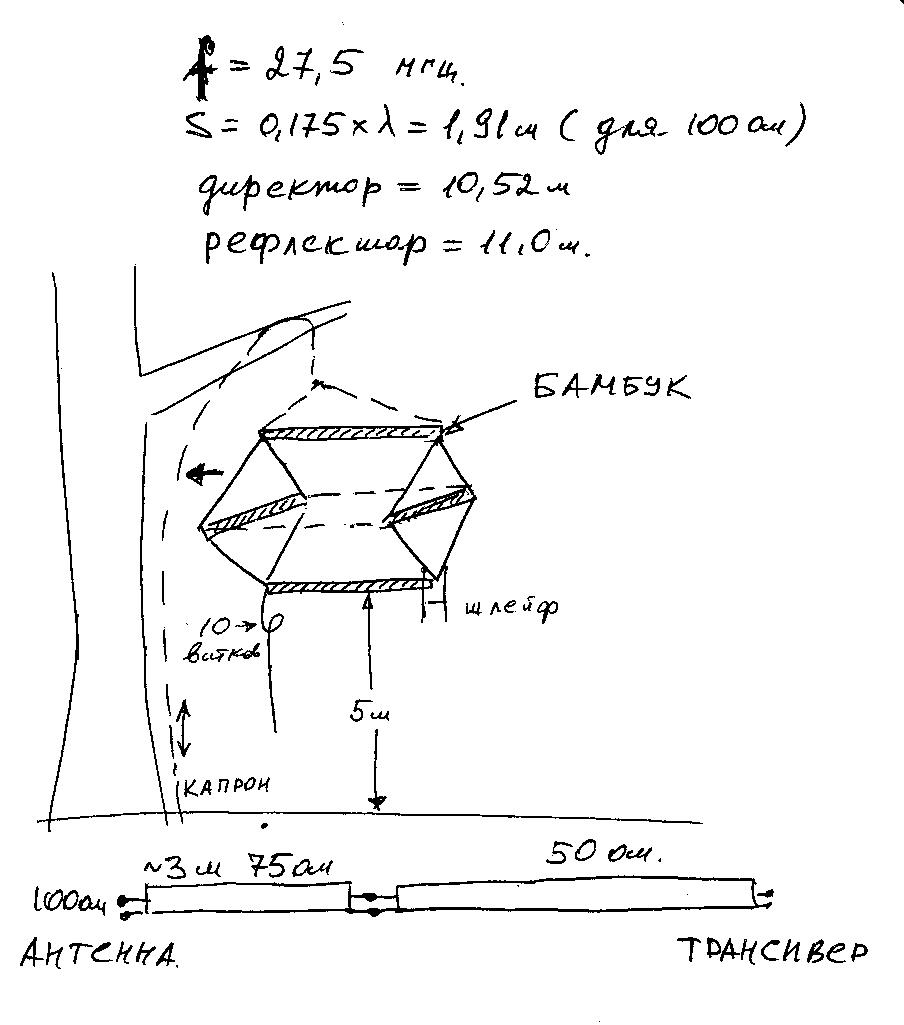 f = 27,5 мгц.
S = 0,175 × λ = 1,91 м ( для 100 ом)
директор = 10,52 м
рефлектор = 11,0 м.
БАМБУК
шлейф
10→
витков
5м
КАПРОН
~3 м 75 ом
50 ом.
100 ом
АНТЕННА.
ТРАНСИВЕР